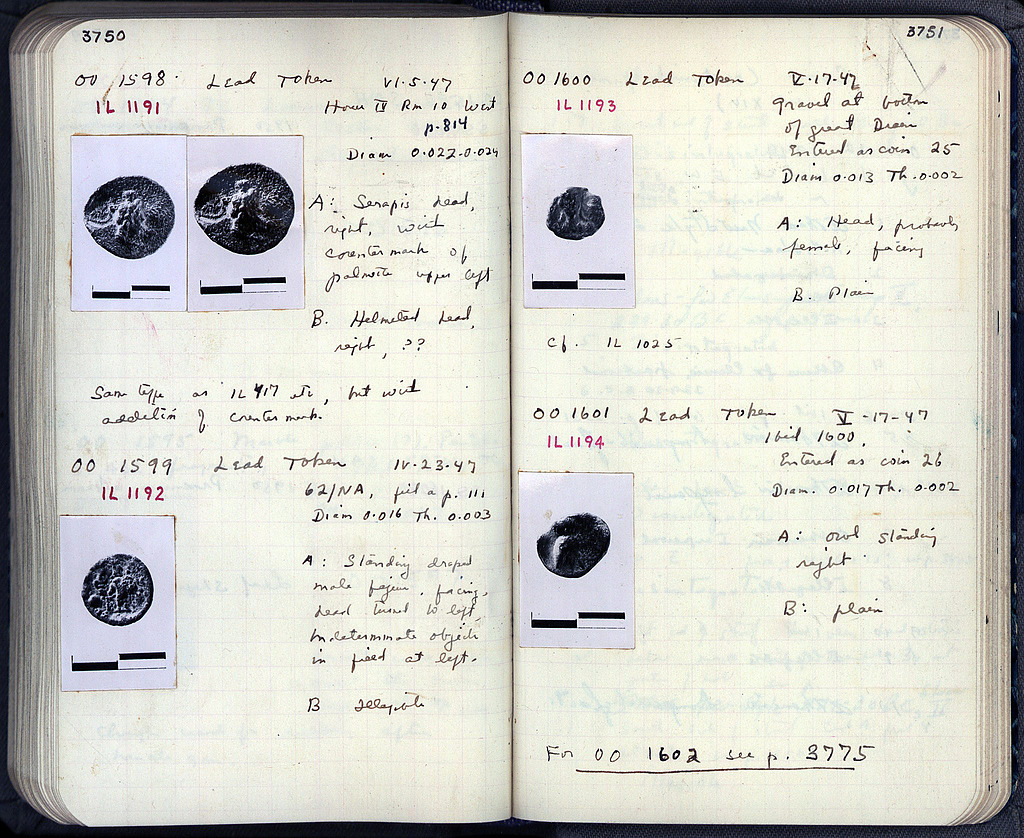 3750
OO 1598 Lead Token VI-5-47
IL 1191 House IV Rm 10 West
p. 814
Diam 0.022-0.024
A: Serapis head,
right, with
countermark of
palmette upper left
B. Helmeted head,
right, ??
Same type as IL 417 etc, but with
addition of countermark.
OO 1599 Lead Token IV-23-47
IL 1192 62/NA, fill a p. 111
Diam 0.016 Th. 0.003
A: Standing draped
male figure, facing,
head turned to left,
Indeterminate objects
in field at left.
B Illegible
3751
OO 1600 Lead Token V-17-47
IL 1193 Gravel at bottom
of great Drain
Entered as coin 25
Diam 0.013 Th. 0.002
A: Head, probably
female, facing
B. Plain
Cf. IL 1025
OO 1601 Lead Token V-17-47
IL 1194 Ibid 1600.
Entered as coin 26
Diam. 0.017 Th. 0.002
A: owl standing
right
B: plain
For OO 1602 see p. 3775